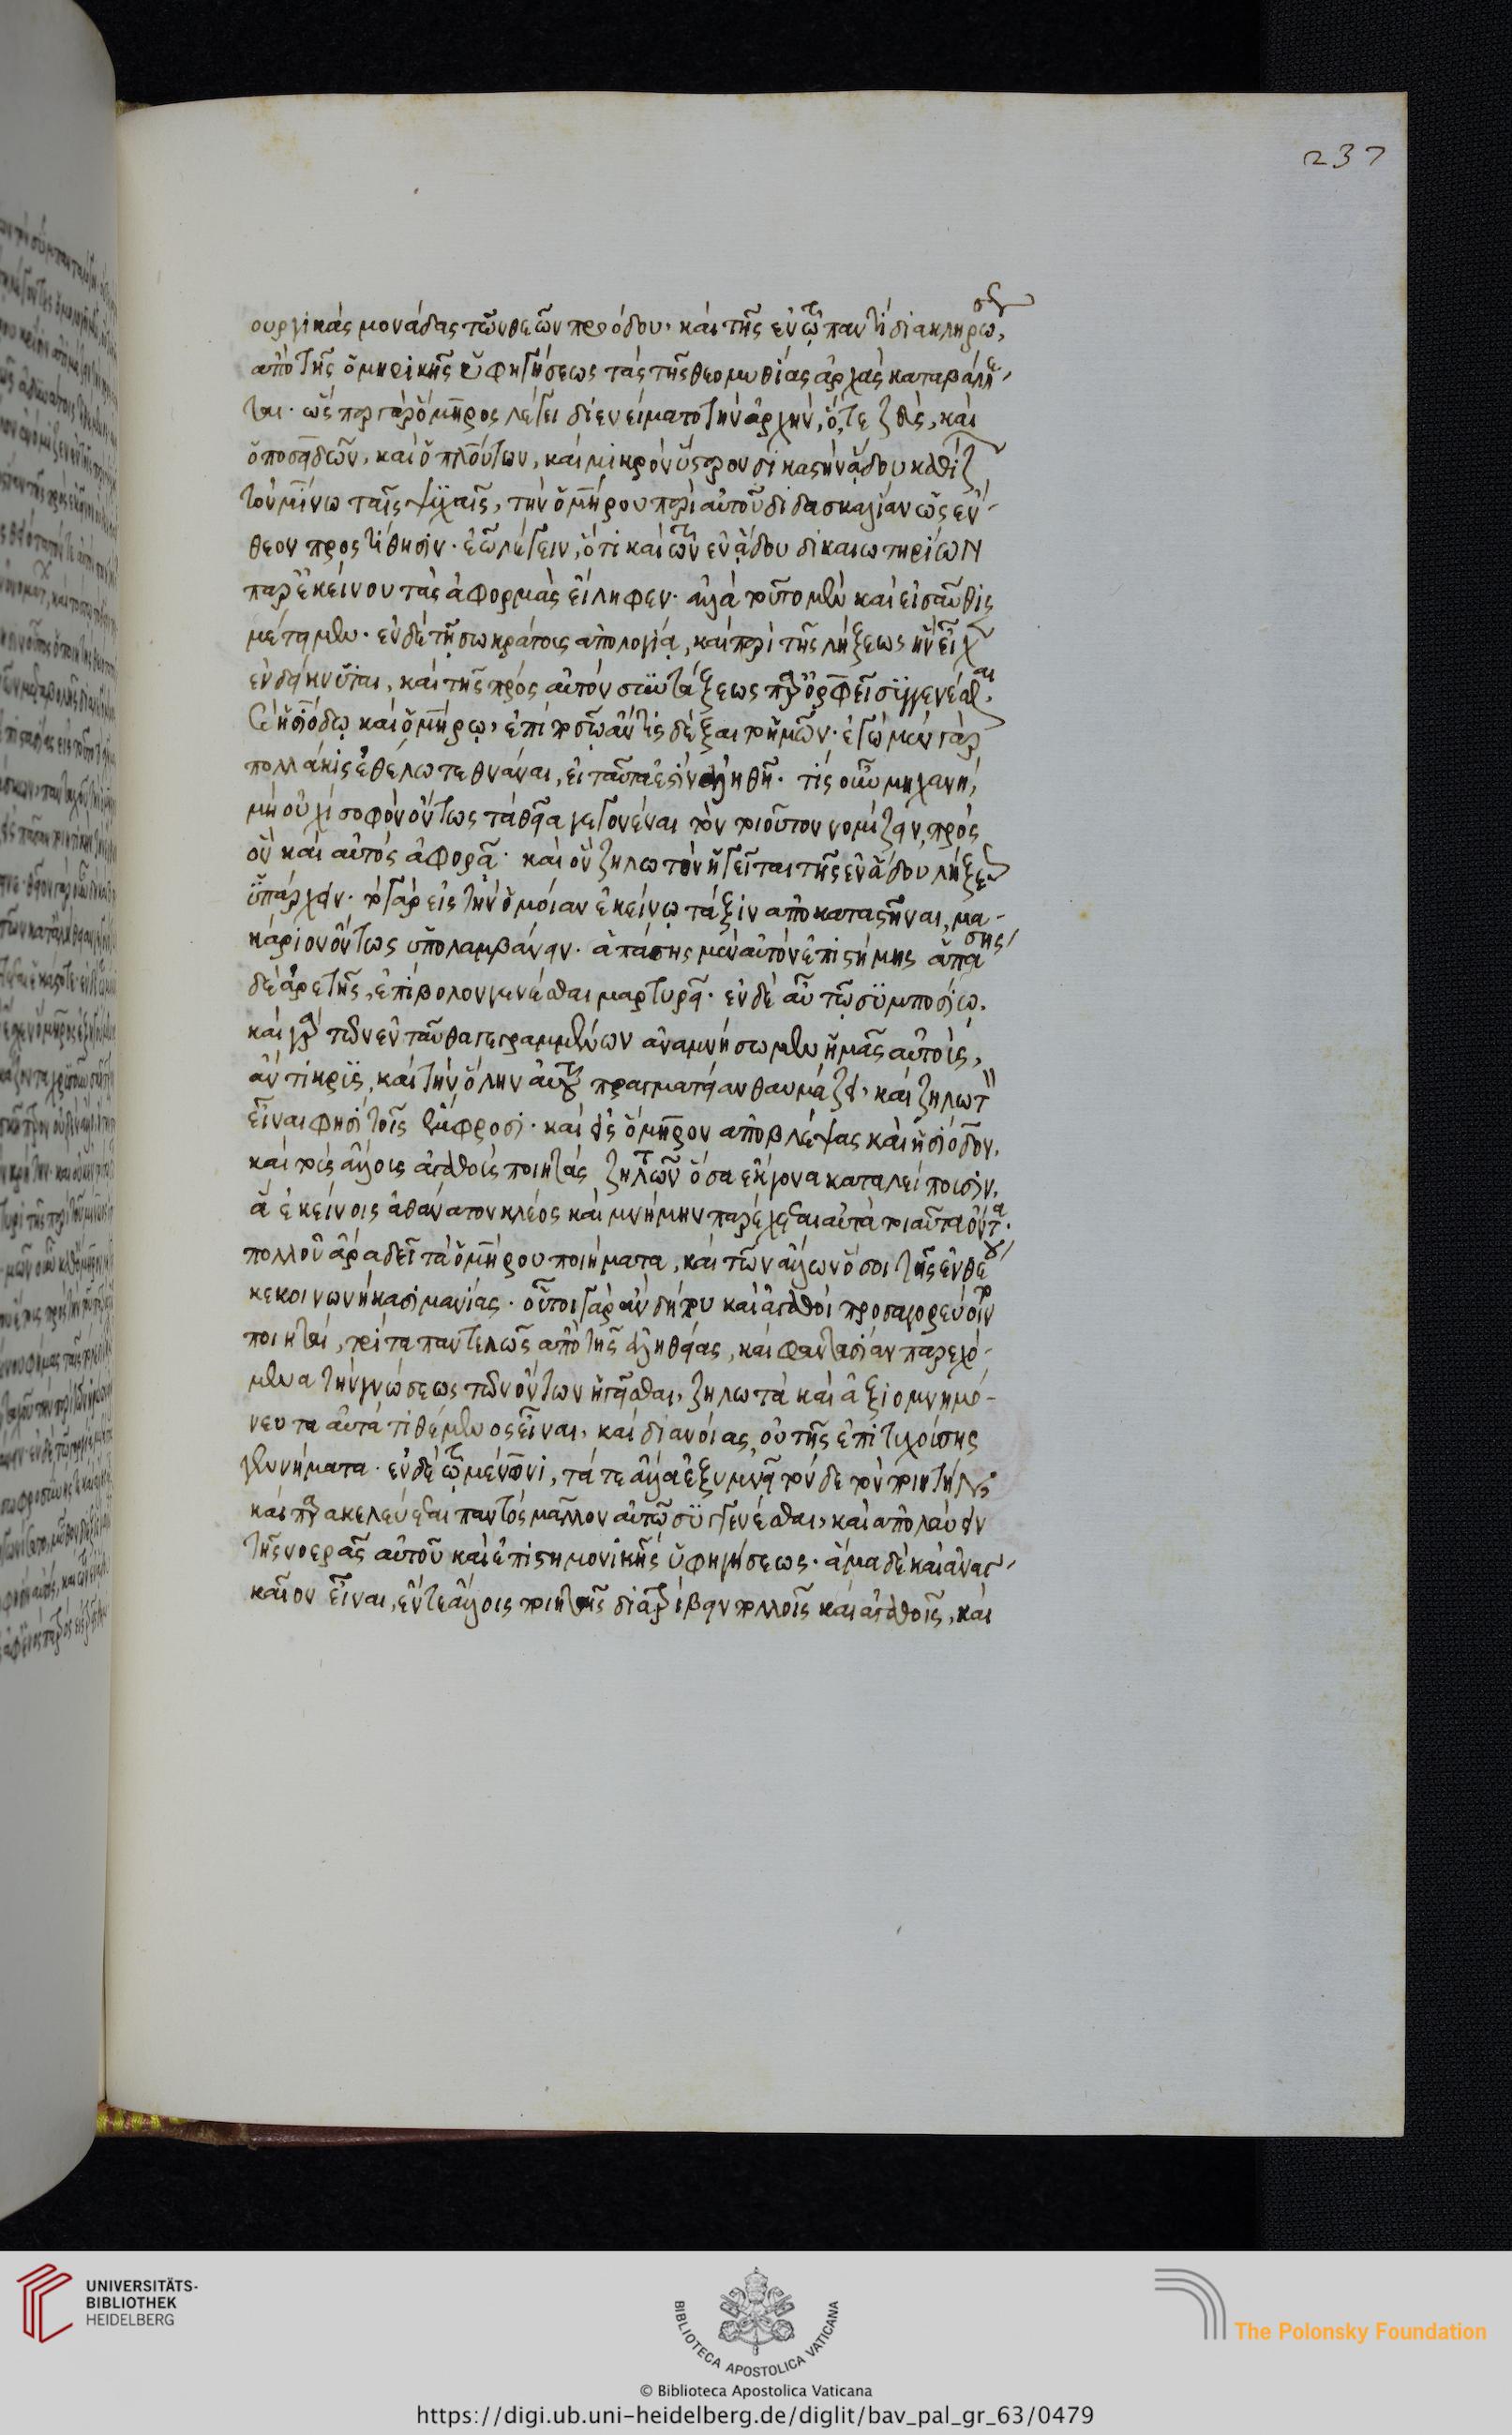 237
ουργικὰς μονάδας τῶν θεῶν προόδου, καὶ τῆς ἐν τῷ παντὶ διακληρώσεως,
ἀπὸ τῆς ὁμηρικῆς ὑφηγήσεως τὰς τῆς θεομυθίας ἀρχὰς καταβάλλε-
ται. ὥσπερ γὰρ ὅμηρος λέγει διενείματο τὴν ἀρχήν, ὅ, τε ζεὺς, καὶ
ὁ ποσειδῶν, καὶ ὁ πλούτων, καὶ μικρὸν ὕστερον δικαστὴν ἅδου καθίζ
τὸν μίνω ταῖς ψυχαῖς, τὴν ὁμήρου περὶ αὐτοῦ διδασκαλίαν ὡς ἔν-
θεον προστίθησιν. ἐῶ λέγειν, ὅτι καὶ τῶν ἐν ἅδου δικαιωτηρίων
παρ' ἐκείνου τὰς ἀφορμὰς εἴληφεν. ἀλλὰ τοῦτο μὲν καὶ εἰσαῦθις
μέτιμεν. ἐν δὲ τῇ σωκράτους ἀπολογίᾳ, καὶ περὶ τῆς λήξεως ἣν εἶχ
ἐνδείκνυται, καὶ τῆς πρὸς αὐτὸν συντάξεως παρ ὀρφεῖ συγγενέσθαι,
καὶ ἡσιόδῳ καὶ ὁμήρῳ, ἐπὶ πόσῳ ἄν τις δέξαιτο ἡμῶν. ἐγὼ μὲν γὰρ
πολλάκις ἐθέλω τεθνάναι, εἰ ταῦτα ἐστὶν ἀληθῆ. τίς οὖν μηχανή,
μὴ οὐχὶ σοφὸν ὄντως τὰ θεῖα γεγονέναι τὸν τοιοῦτον νομίζειν, πρὸς
ὃν καὶ αὐτὸς ἀφορᾷ. καὶ ὃν ζηλωτὸν ἡγεῖται τῆς ἐν ἅδου λήξεως
ὑπάρχειν. τὸ γὰρ εἰς τὴν ὁμοίαν ἐκείνῳ τάξιν ἀποκαταστῆναι, μα-
κάριον ὄντως ὑπολαμβάνειν. ἁπάσης μὲν αὐτὸν ἐπιστήμης ἁπάσης
δὲ ἀρετῆς, ἐπίβολον γενέσθαι μαρτυρεῖ. ἐν δὲ αὖ τῷ συμποσίῳ.
καὶ γὰρ τῶν ἐνταῦθα γεγραμμένων ἀναμνήσωμεν ἡμᾶς αὐτοὺς,
ἀντικρὺς, καὶ τὴν ὅλην αὐτοῦ πραγματείαν θαυμάζει, καὶ ζηλωτ
εἶναι φησὶ τοῖς ἔμφροσι. καὶ εἰς ὅμηρον ἀποβλέψας καὶ ἡσίοδον,
καὶ τοὺς ἄλλους ἀγαθοὺς ποιητὰς ζηλῶν ὅσα ἔκγονα καταλείπουσιν,
ἃ ἐκείνοις ἀθάνατον κλέος καὶ μνήμην παρέχεται αὐτὰ τοιαῦτα ὄντα.
πολλοῦ ἄρα δεῖ τὰ ὁμήρου ποιήματα, καὶ τῶν ἄλλων ὅσοι τῆς ἐνθέου
κεκοινωνήκασι μανίας. οὗτοι γὰρ ἂν δήπου καὶ ἀγαθοὶ προσαγορεύοιντο
ποιηταί, τρίτα παντελῶς ἀπὸ τῆς ἀληθείας, καὶ φαντασίαν παρεχό-
μενα τὴν γνώσεως τῶν ὄντων ἡγεῖσθαι, ζηλωτὰ καὶ ἀξιομνημό-
νευτα αὐτὰ τιθέμενος εἶναι, καὶ διανοίας οὐ τῆς ἐπιτυχούσης
γεννήματα. ἐν δὲ τῷ μίνωνι, τά τε ἄλλα ἐξυμνεῖ τόνδε τὸν ποιητὴν
καὶ παρακελεύεται παντὸς μᾶλλον αὐτῷ συγγενέσθαι, καὶ ἀπολαύειν
τῆς νοερᾶς αὐτοῦ καὶ ἐπιστημονικῆς ὑφηγήσεως. ἅμα δὲ καὶ ἀναγ-
καῖον εἶναι, ἔν τε ἄλλοις ποιηταῖς διατρίβειν πολλοῖς καὶ ἀγαθοῖς, καὶ
UNIVERSITÄTS-
BIBLIOTHEK
HEIDELBERG
BIBLIOTECA APOSTOLICA VATICANA
The Polonsky Foundation
© Biblioteca Apostolica Vaticana
https://digi.ub.uni-heidelberg.de/diglit/bav_pal_gr_63/0479